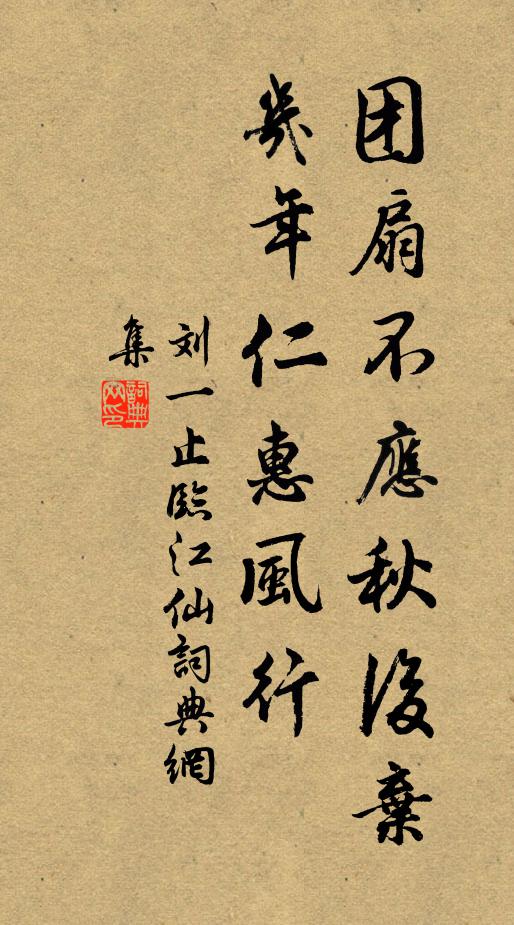 团扇不應秋後棄
幾年仁惠風行
刘一止臨江仙詞典網
集
詞典網印